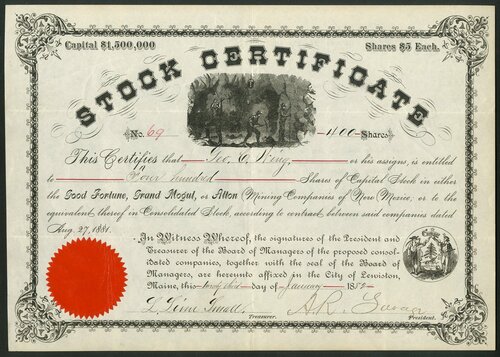 Capital $1,500,000
Shares $5 Each.
STOCK CERTIFICATE
No. 69
400 Shares
This Certifies that Geo. C. Wing, or his assigns, is entitled
to Four hundred Shares of Capital Stock in either
the Good Fortune, Grand Mogul, or Alton Mining Companies of New Mexico, or to the
equivalent thereof in Consolidated Stock, according to contract between said companies dated
Aug. 27, 1881.
In Witness Whereof, the signatures of the President and
Treasurer of the Board of Managers of the proposed consol-
idated companies, together with the seal of the Board of
Managers, are hereunto affixed in the City of Lewiston,
Maine, this day of January 188
Treasurer.
A. R.
President.